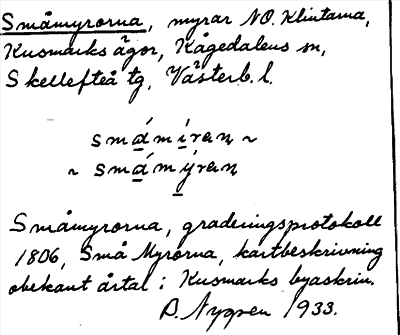 Småmyrorna, myrar NO. Klintarna,
Kusmarks ägor, Kågedalens sn,
Skellefteå tg, Västerb. l.
smǻmíran ~
~ smǻmýran
Småmyrorna, graderingsprotokoll
1806, Små Myrorna, kartbeskrivning
obekant årtal i Kusmarks byaskrin.
B. Nygren 1933.